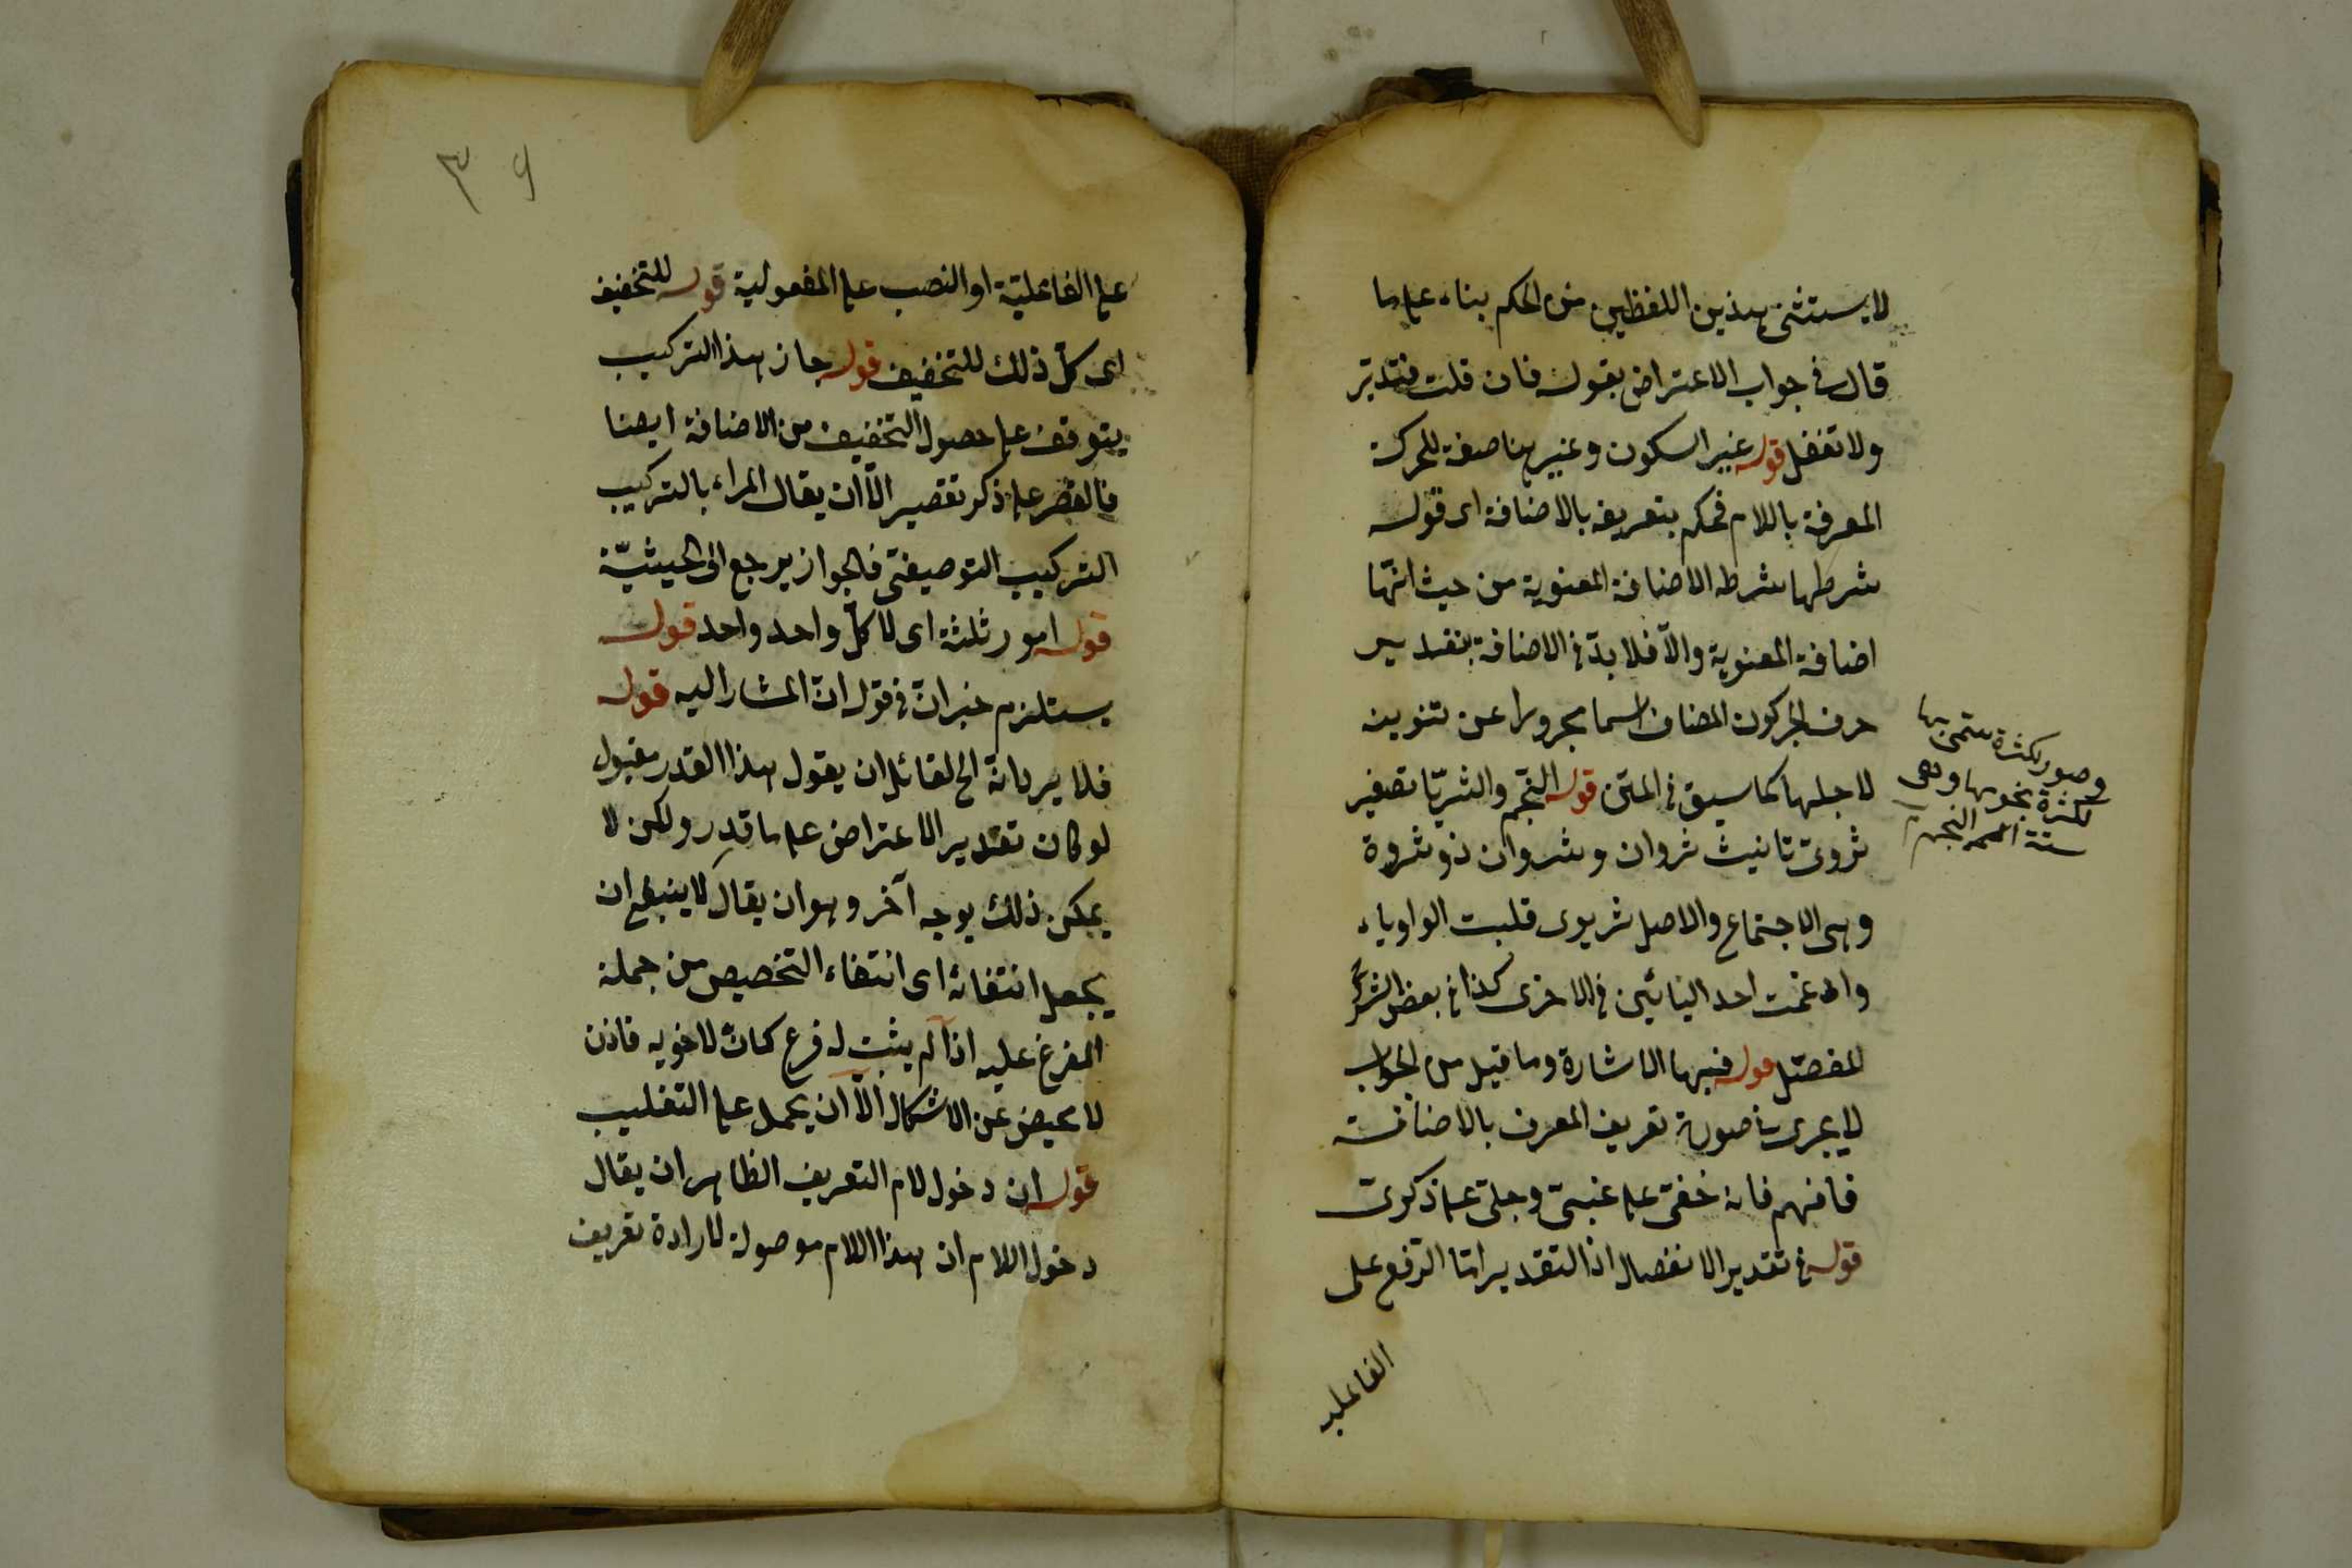 لا يستثنى هذين اللفظين من الحكم بناء على ما
قال في جواب الاعتراض بقوله فان قلت فتدبر
ولا تغفل قوله غير السكون وغيرها صفة للحركة
المعرفة باللام فحكم بتعريفه بالاضافة اى قوله
شرطها شرط الاضافة المعنوية من حيث انها
اضافة المعنوية والا فلا بد في الاضافة بتقدير
حرف الجر كون المضاف اسما مجرورا عن تنوين
لاجلها كما سبق في المتن قوله النجم والثريا تصغير
ثروى تانيث ثروان وثروان ذو ثروة
وهى الاجتماع والاصل ثريوى قلبت الواو ياء
وادغمت احد اليائين في الاخرى كذا في بعض
للمفصل قوله فيها الاشارة وما قيل من الجواب
لا يجرى في صورة تعريف المعرف بالاضافة
فافهم فانه خفى على غبى وجلى على ذكوى
قوله في تقدير الانفصال اذ التقدير اما الرفع على
الفاعلية
وصور لكثرة سمى بها
لكثرة نجومها وهى
ستة النجم
٣٩
على الفاعلية او النصب على المفعولية قوله للتخفيف
اى كل ذلك للتخفيف قوله جاز هذا التركيب
يتوقف على حصول التخفيف من الاضافة ايضا
فالقصر على ذكر تقصير الا ان يقال المراد بالتركيب
التركيب التوصيفى فالجواز يرجع الى الحيثية
قوله امور ثلثة اى لا كل واحد واحد قوله
يستلزم خبر ان في قوله ان المشار اليه قوله
فلا يرد انه الخ لقائل ان يقول هذا القدر مقبول
لو كان تقدير الاعتراض على ما قدر ولكن لا
يمكن ذلك بوجه آخر وهو ان يقال لا ينبغى ان
يجعل انتفائه اى انتفاء التخصيص من جملة
المفرع عليه اذا لم يثبت له فرع كما لاخويه فاذن
لا محيص عن الاشكال الا ان يحمل على التغليب
قوله ان دخول لام التعريف الظاهر ان يقال
دخول اللام ان هذا اللام موصولة لا رادة تعريف